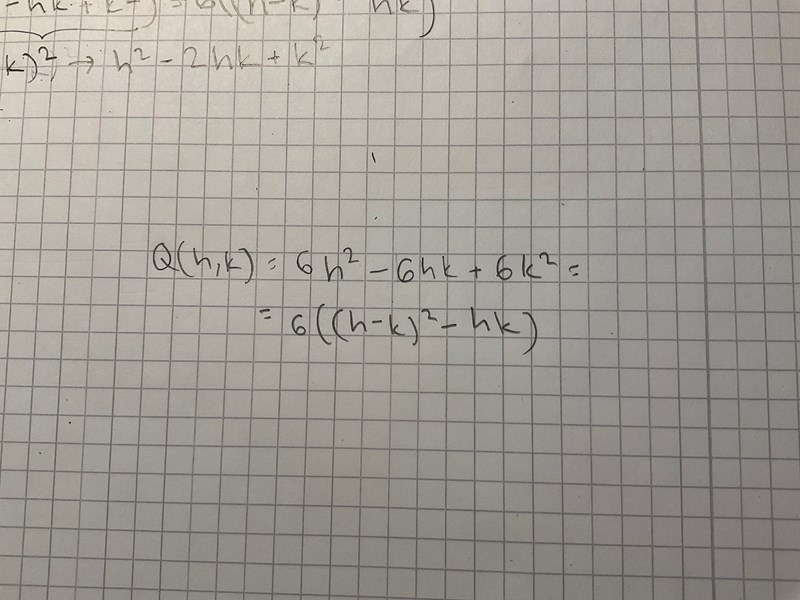 - hk + k²) = 6((h-k)² hk)
k)² → h² - 2hk + k²
Q(h,k) = 6h² - 6hk + 6k² =
= 6((h-k)² - hk)